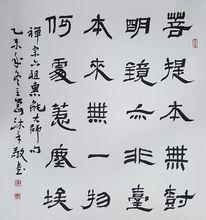 菩提本無樹
明鏡亦非臺
本來無一物
何處惹塵埃
禪宗六祖惠能大師句
乙未年冬沐手敬書